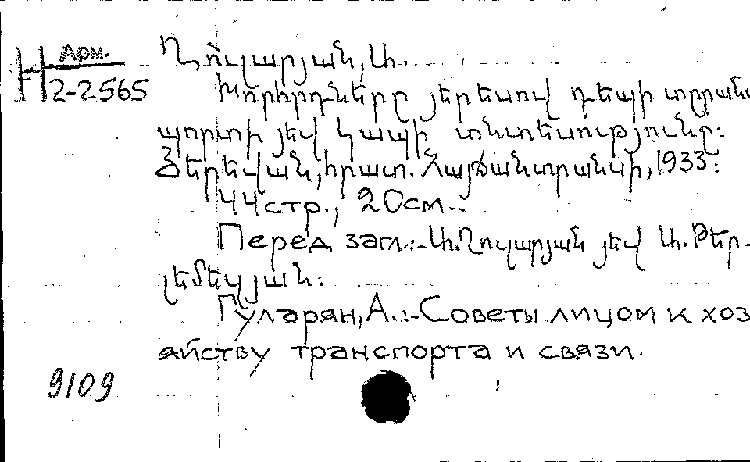 Арм.
Н 2-2565
Ղուլարյան, Ա.
Խորհրդները յերեսով դեպի տրրանս
պորտի յեվ կապի տնտեսությունը:
Յերեվան, հրատ. Հայճանտրանսի, 1933:
44 стр., 20 см.
Перед загл.: Ա. Ղուլարյան յեվ Ա. Թեր-
լեմեզյան.
Гуларян, А.:-Советы лицом к хоз
яйству транспорта и связи.
9109